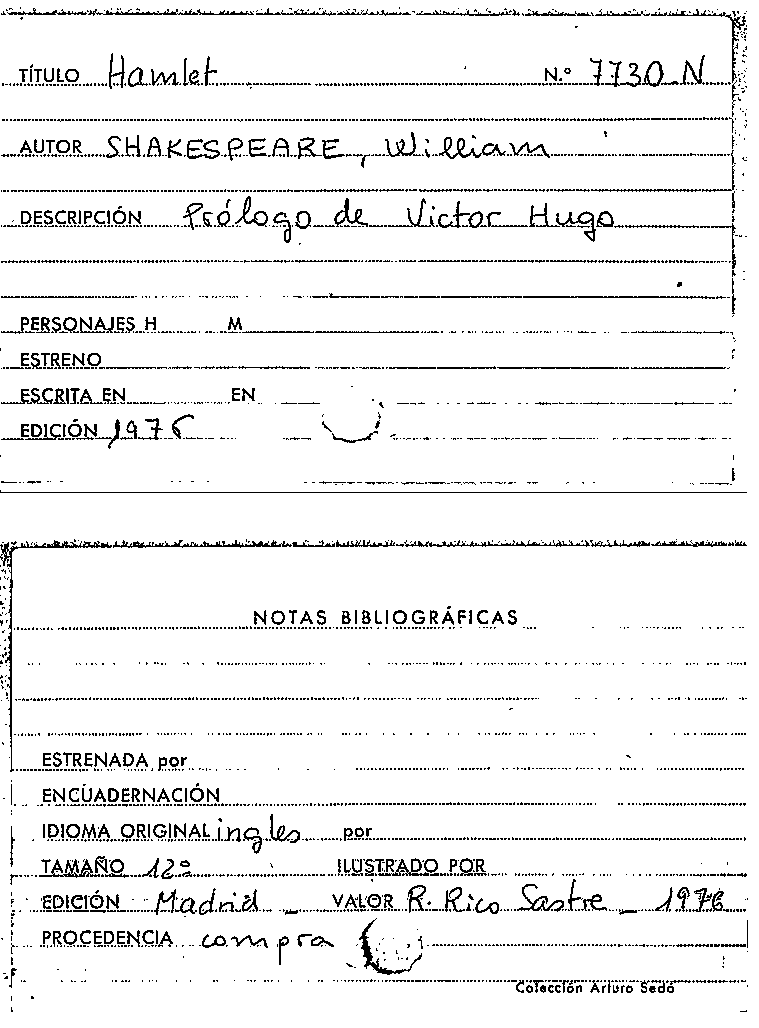 TÍTULO Hamlet N.º 7730-N
AUTOR SHAKESPEARE, William
DESCRIPCIÓN Prólogo de Victor Hugo
PERSONAJES H M
ESTRENO
ESCRITA EN EN
EDICIÓN 1976
NOTAS BIBLIOGRÁFICAS
ESTRENADA por
ENCUADERNACIÓN
IDIOMA ORIGINAL ingles por
TAMAÑO 12º ILUSTRADO POR
EDICIÓN Madrid - VALOR R. Rico Sastre - 1976
PROCEDENCIA compra
Colección Arturo Sedó